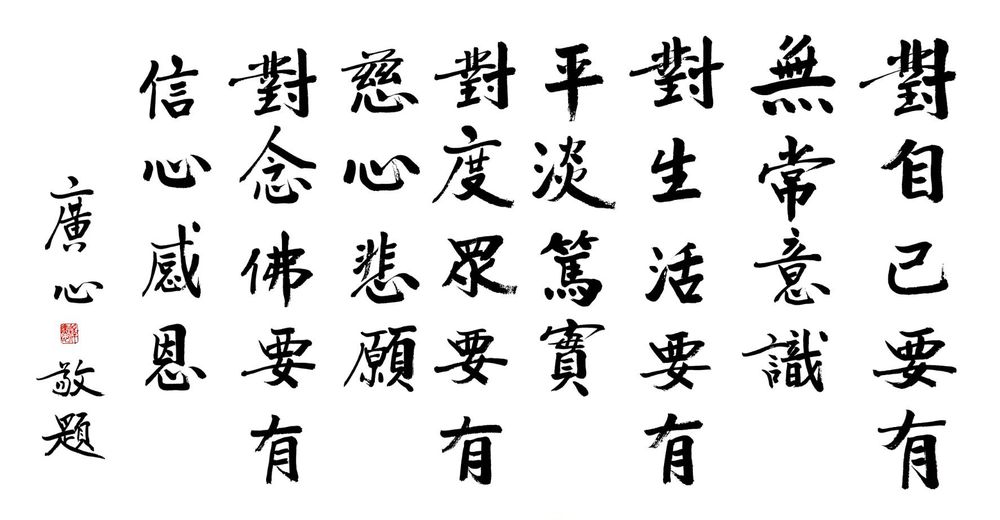 對自己要有
無常意識
對生活要有
平淡篤實
對度眾要有
慈心悲願
對念佛要有
信心感恩
廣心
敬題